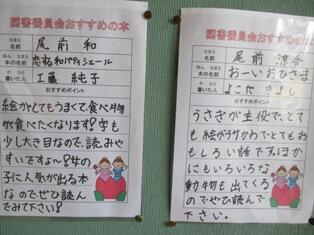 図書委員会おすすめの本
なまえ
名前
尾前 和
ほん なまえ
本の名前
恋する和パティシエール
か ひと
書いた人
工藤 純子
おすすめポイント
絵がとてもうまくて、食べ物
が食べたくなります!字も
少し大き目なので、読みや
すいですよ〜!女の
子に人気が出る本
なのでぜひ読ん
でみて下さい!
図書委員会おすすめの本
なまえ
名前
尾前 涼香
ほん なまえ
本の名前
おーいおひさま
か ひと
書いた人
よこた きよし
おすすめポイント
うさぎが主役で、とて
も絵がうまかわで、とてもお
もしろい話です。ほか
にもいろいろな
動物も出てくる
のでぜひ読んで
下さい。